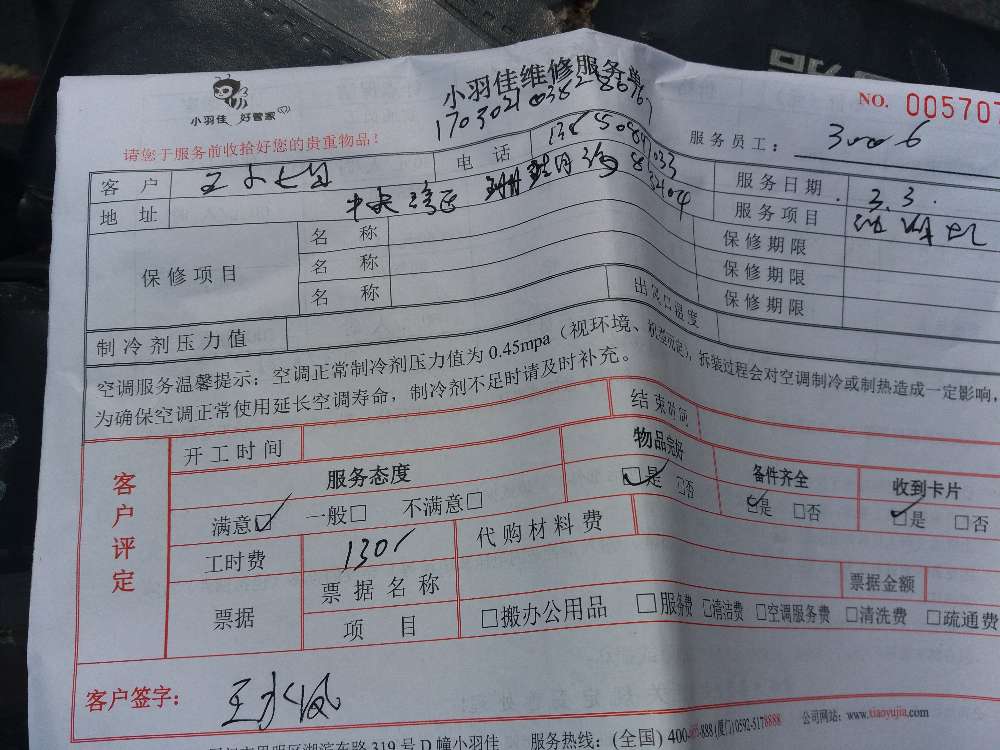 小羽佳 好管家
小羽佳维修服务单
NO. 005707
170302103828676
请您于服务前收拾好您的贵重物品！
服务员工：
客户 电话 服务日期 3.3
地址 中央 服务项目
保修项目 名称 保修期限
名称 保修期限
名称 保修期限
制冷剂压力值 出风口温度
空调服务温馨提示：空调正常制冷剂压力值为0.45mpa（视环境、 拆装过程会对空调制冷或制热造成一定影响，
为确保空调正常使用延长空调寿命，制冷剂不足时请及时补充。
客户评定
开工时间 结束时间
服务态度 物品完好 备件齐全 收到卡片
满意☑ 一般□ 不满意□ ☑是 □否 ☑是 □否 ☑是 □否
工时费 130 代购材料费
票据 票据名称 票据金额
项目 □搬办公用品 □服务费 □清洁费 □空调服务费 □清洗费 □疏通费
客户签字：
湖滨东路319号D幢小羽佳 服务热线：(全国) 400- -888 (厦门)0592-5178888 公司网站：www.xiaoyujia.com